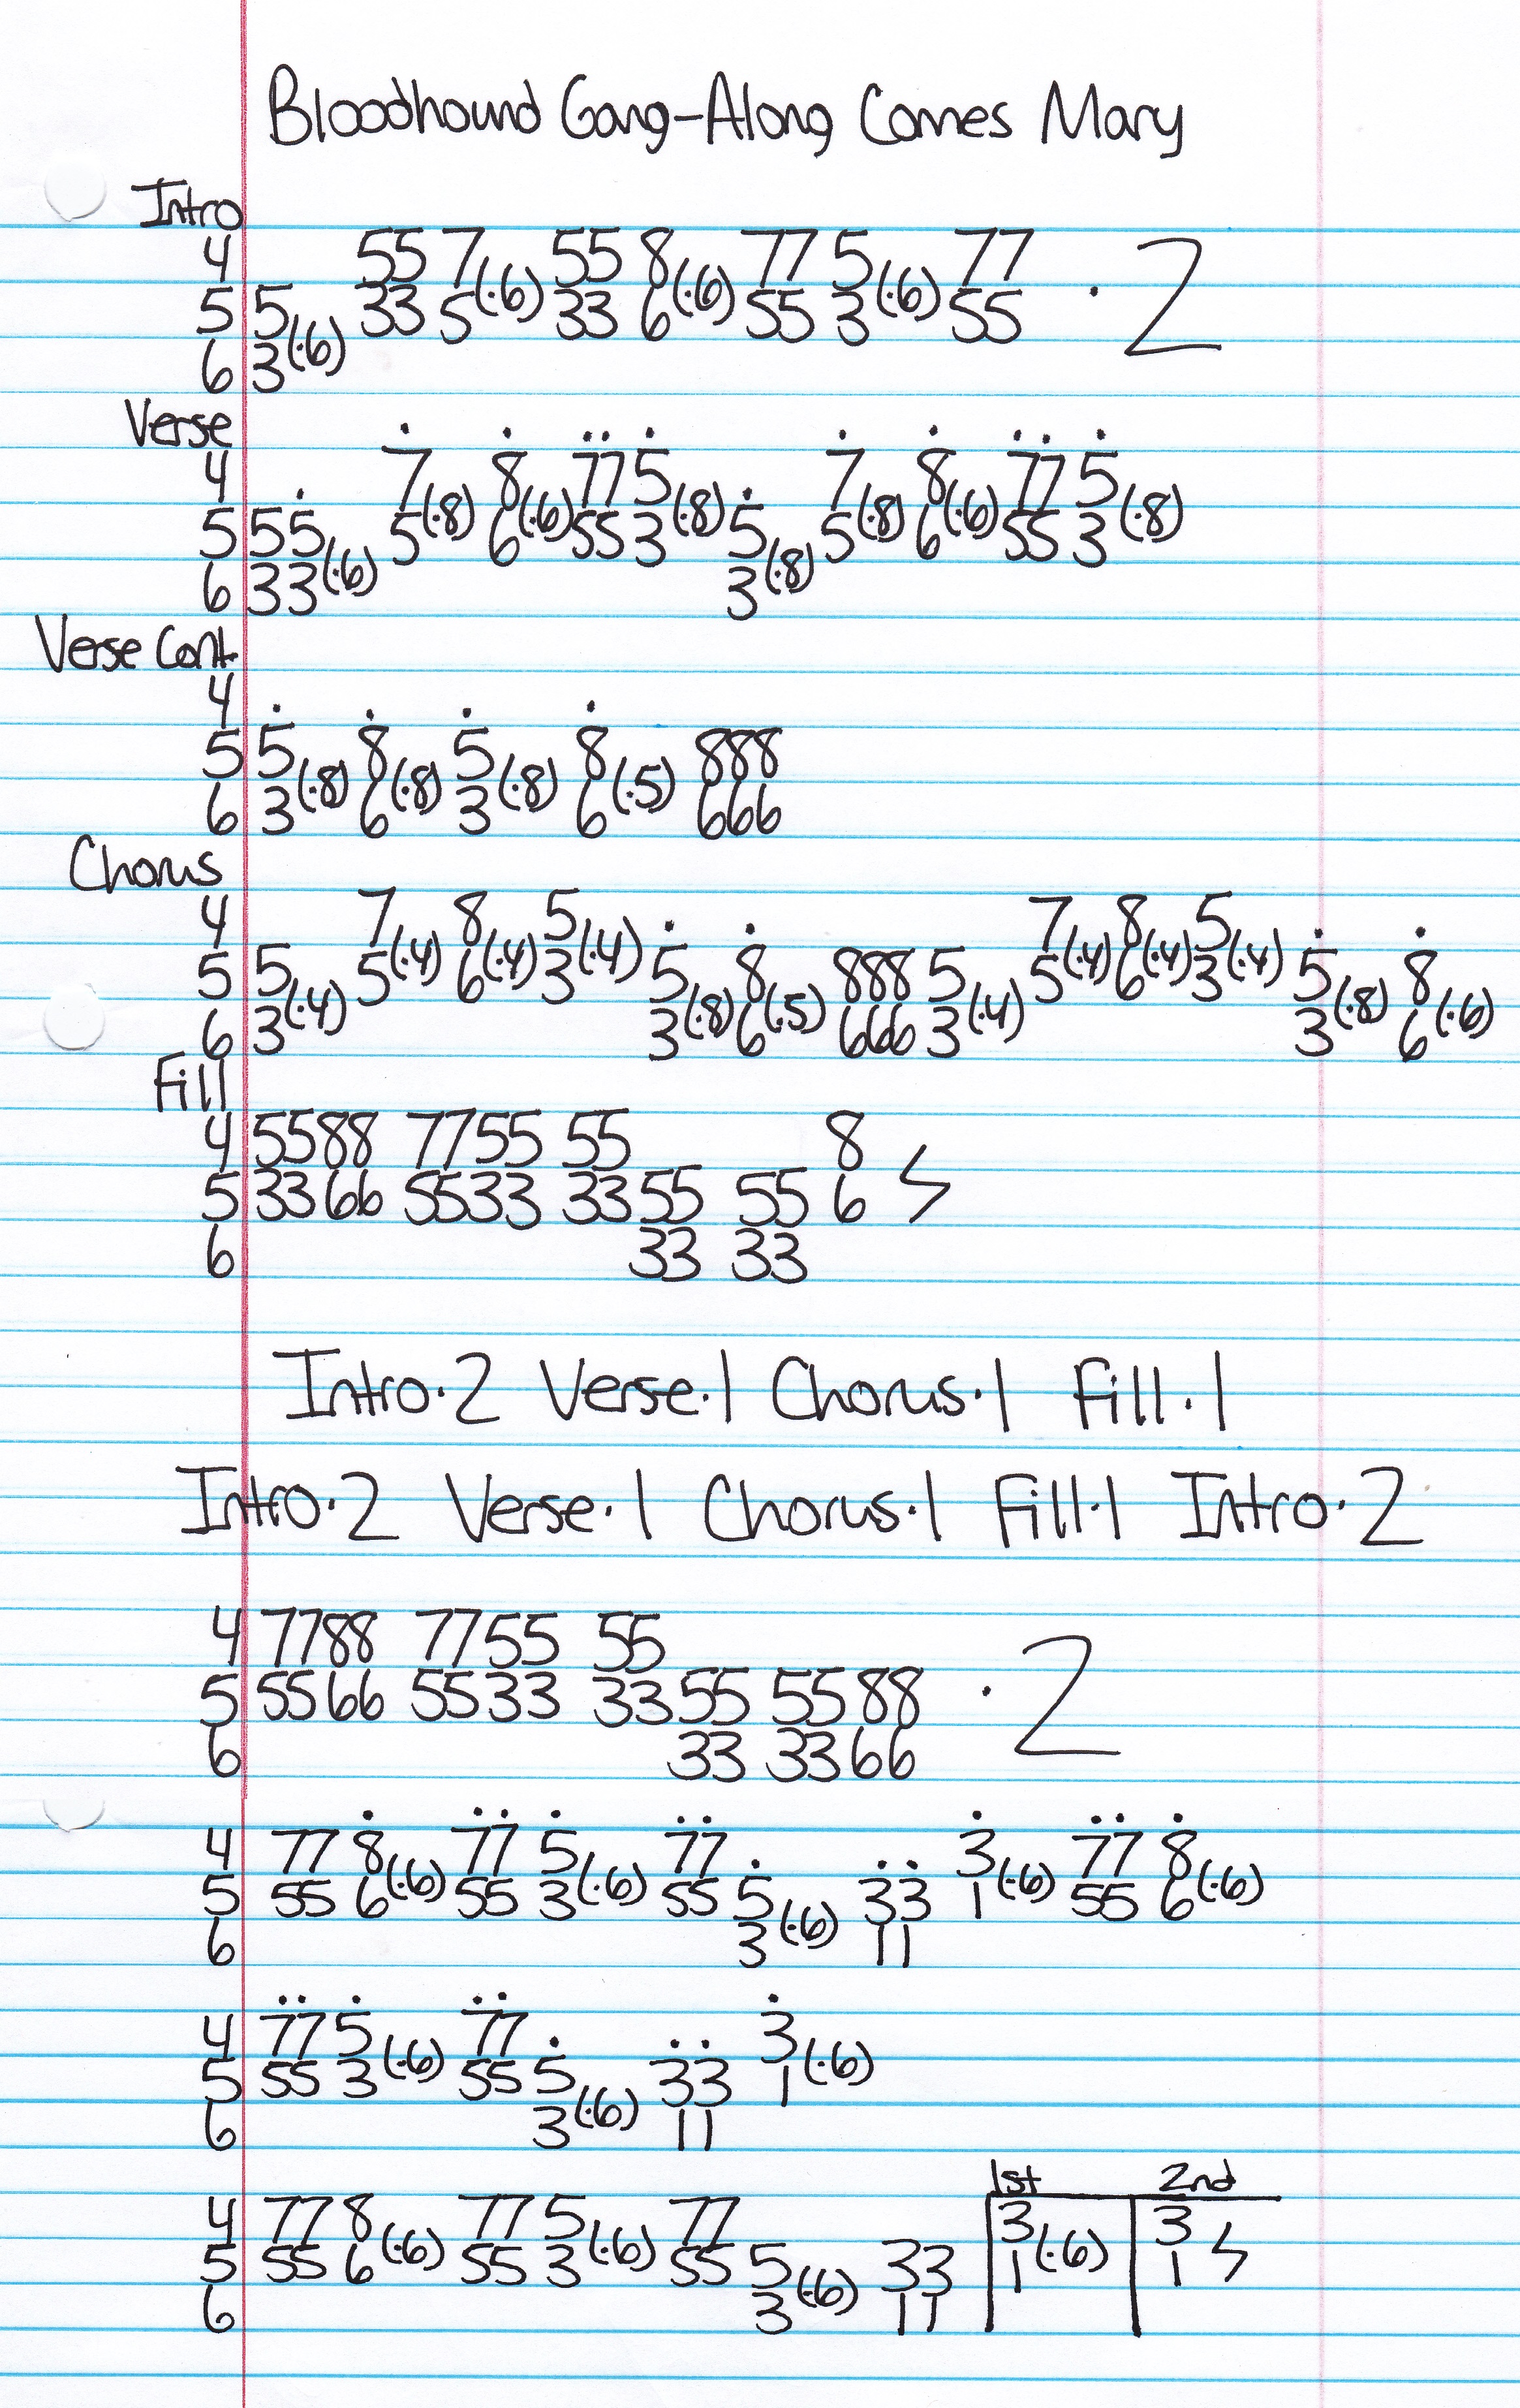 Bloodhound Gang-Along Comes Mary
Intro
4 55 7(·6) 55 8(·6) 77 5(·6) 77 · 2
5 5 33 5 33 6 55 3 55
6 3(·6)
Verse
4 7(·8) 8(·6) 77 5(·8) 7(·8) 8(·6) 77 5(·8)
5 55 5 6 55 3 5 5 6 55 3
6 33(·6) 3(·8)
Verse Cont.
4
5 5(·8) 8(·8) 5(·8) 8(·5) 888
6 3 6 3 6 666
Chorus
4 7(·4) 8(·4) 5(·4) 7(·4) 8(·4) 5(·4)
5 5 5 6 3 5 8 888 5 5 6 3 5 8
6 3(·4) 3(·8) 6(·5) 666 3(·4) 3(·8) 6(·6)
Fill
4 5588 7755 55 8
5 3366 5533 3355 55 6
6 33 33
Intro·2 Verse·1 Chorus·1 Fill·1
Intro·2 Verse·1 Chorus·1 Fill·1 Intro·2
4 7788 7755 55 · 2
5 5566 5533 3355 5588
6 33 3366
4 77 8 77 5 77 3 77 8
5 55 6(·6) 55 3(·6) 55 5 33 1(·6) 55 6(·6)
6 3(·6) 11
4 77 5 77 3
5 55 3(·6) 55 5 33 1(·6)
6 3(·6) 11
1st 2nd
4 77 8 77 5 77 3 3
5 55 6(·6) 55 3(·6) 55 5 33 1(·6) 1
6 3(·6) 11